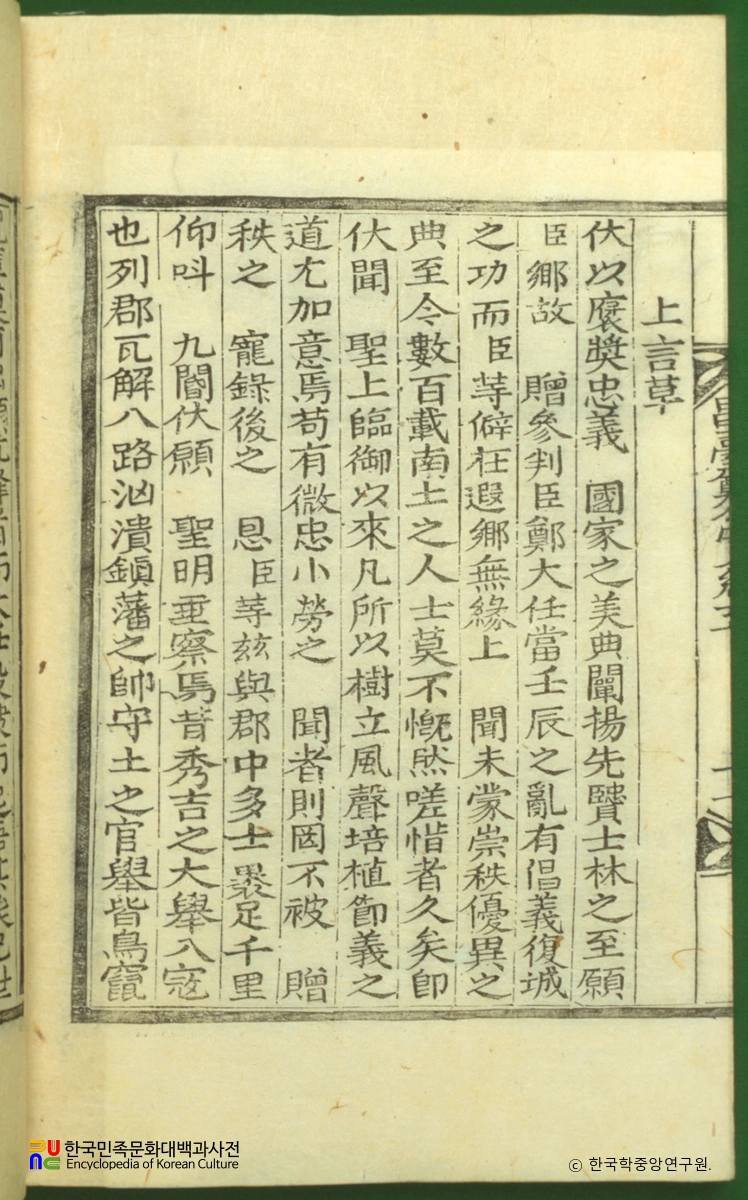 上言草
伏以褒奬忠義 國家之美典闡揚先賢士林之至願
臣鄉故 贈參判臣鄭大任當壬辰之亂有倡義復城
之功而臣等僻在遐鄉無緣上 聞未蒙崇秩優異之
典至今數百載南土之人士莫不慨然嗟惜者久矣卽
伏聞 聖上臨御以來凡所以樹立風聲培植節義之
道尤加意焉苟有微忠小勞之 聞者則罔不被 贈
秩之 寵錄後之 恩臣等玆與郡中多士裹足千里
仰呌 九閽伏願 聖明垂察焉昔秀吉之大擧入寇
也列郡瓦解八路汹潰鎭藩之帥守土之官擧皆鳥竄
한국민족문화대백과사전
Encyclopedia of Korean Culture
ⓒ 한국학중앙연구원.